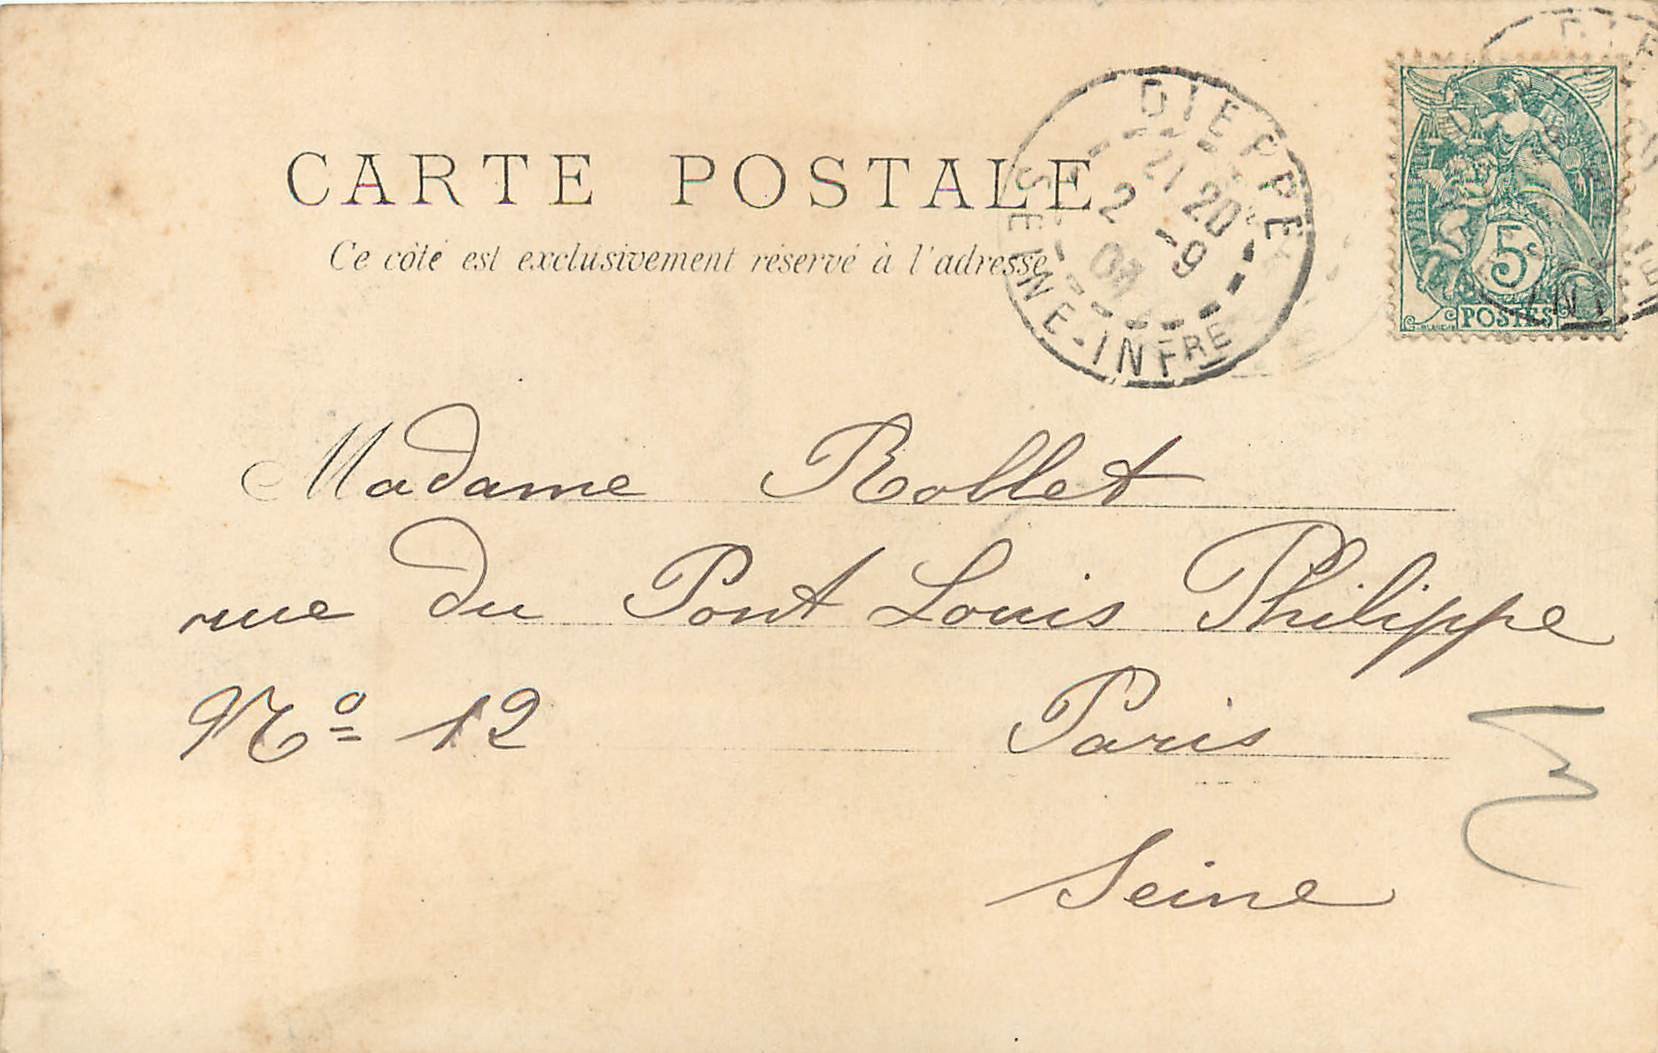 DIEPPE
21 20
2 -9
04
SEINE-INFRE
REPUBLIQUE FRANCAISE
5c
POSTES
CARTE POSTALE
Ce côté est exclusivement réservé à l'adresse
Madame Rollet
rue du Pont Louis Philippe
No 12 Paris
Seine